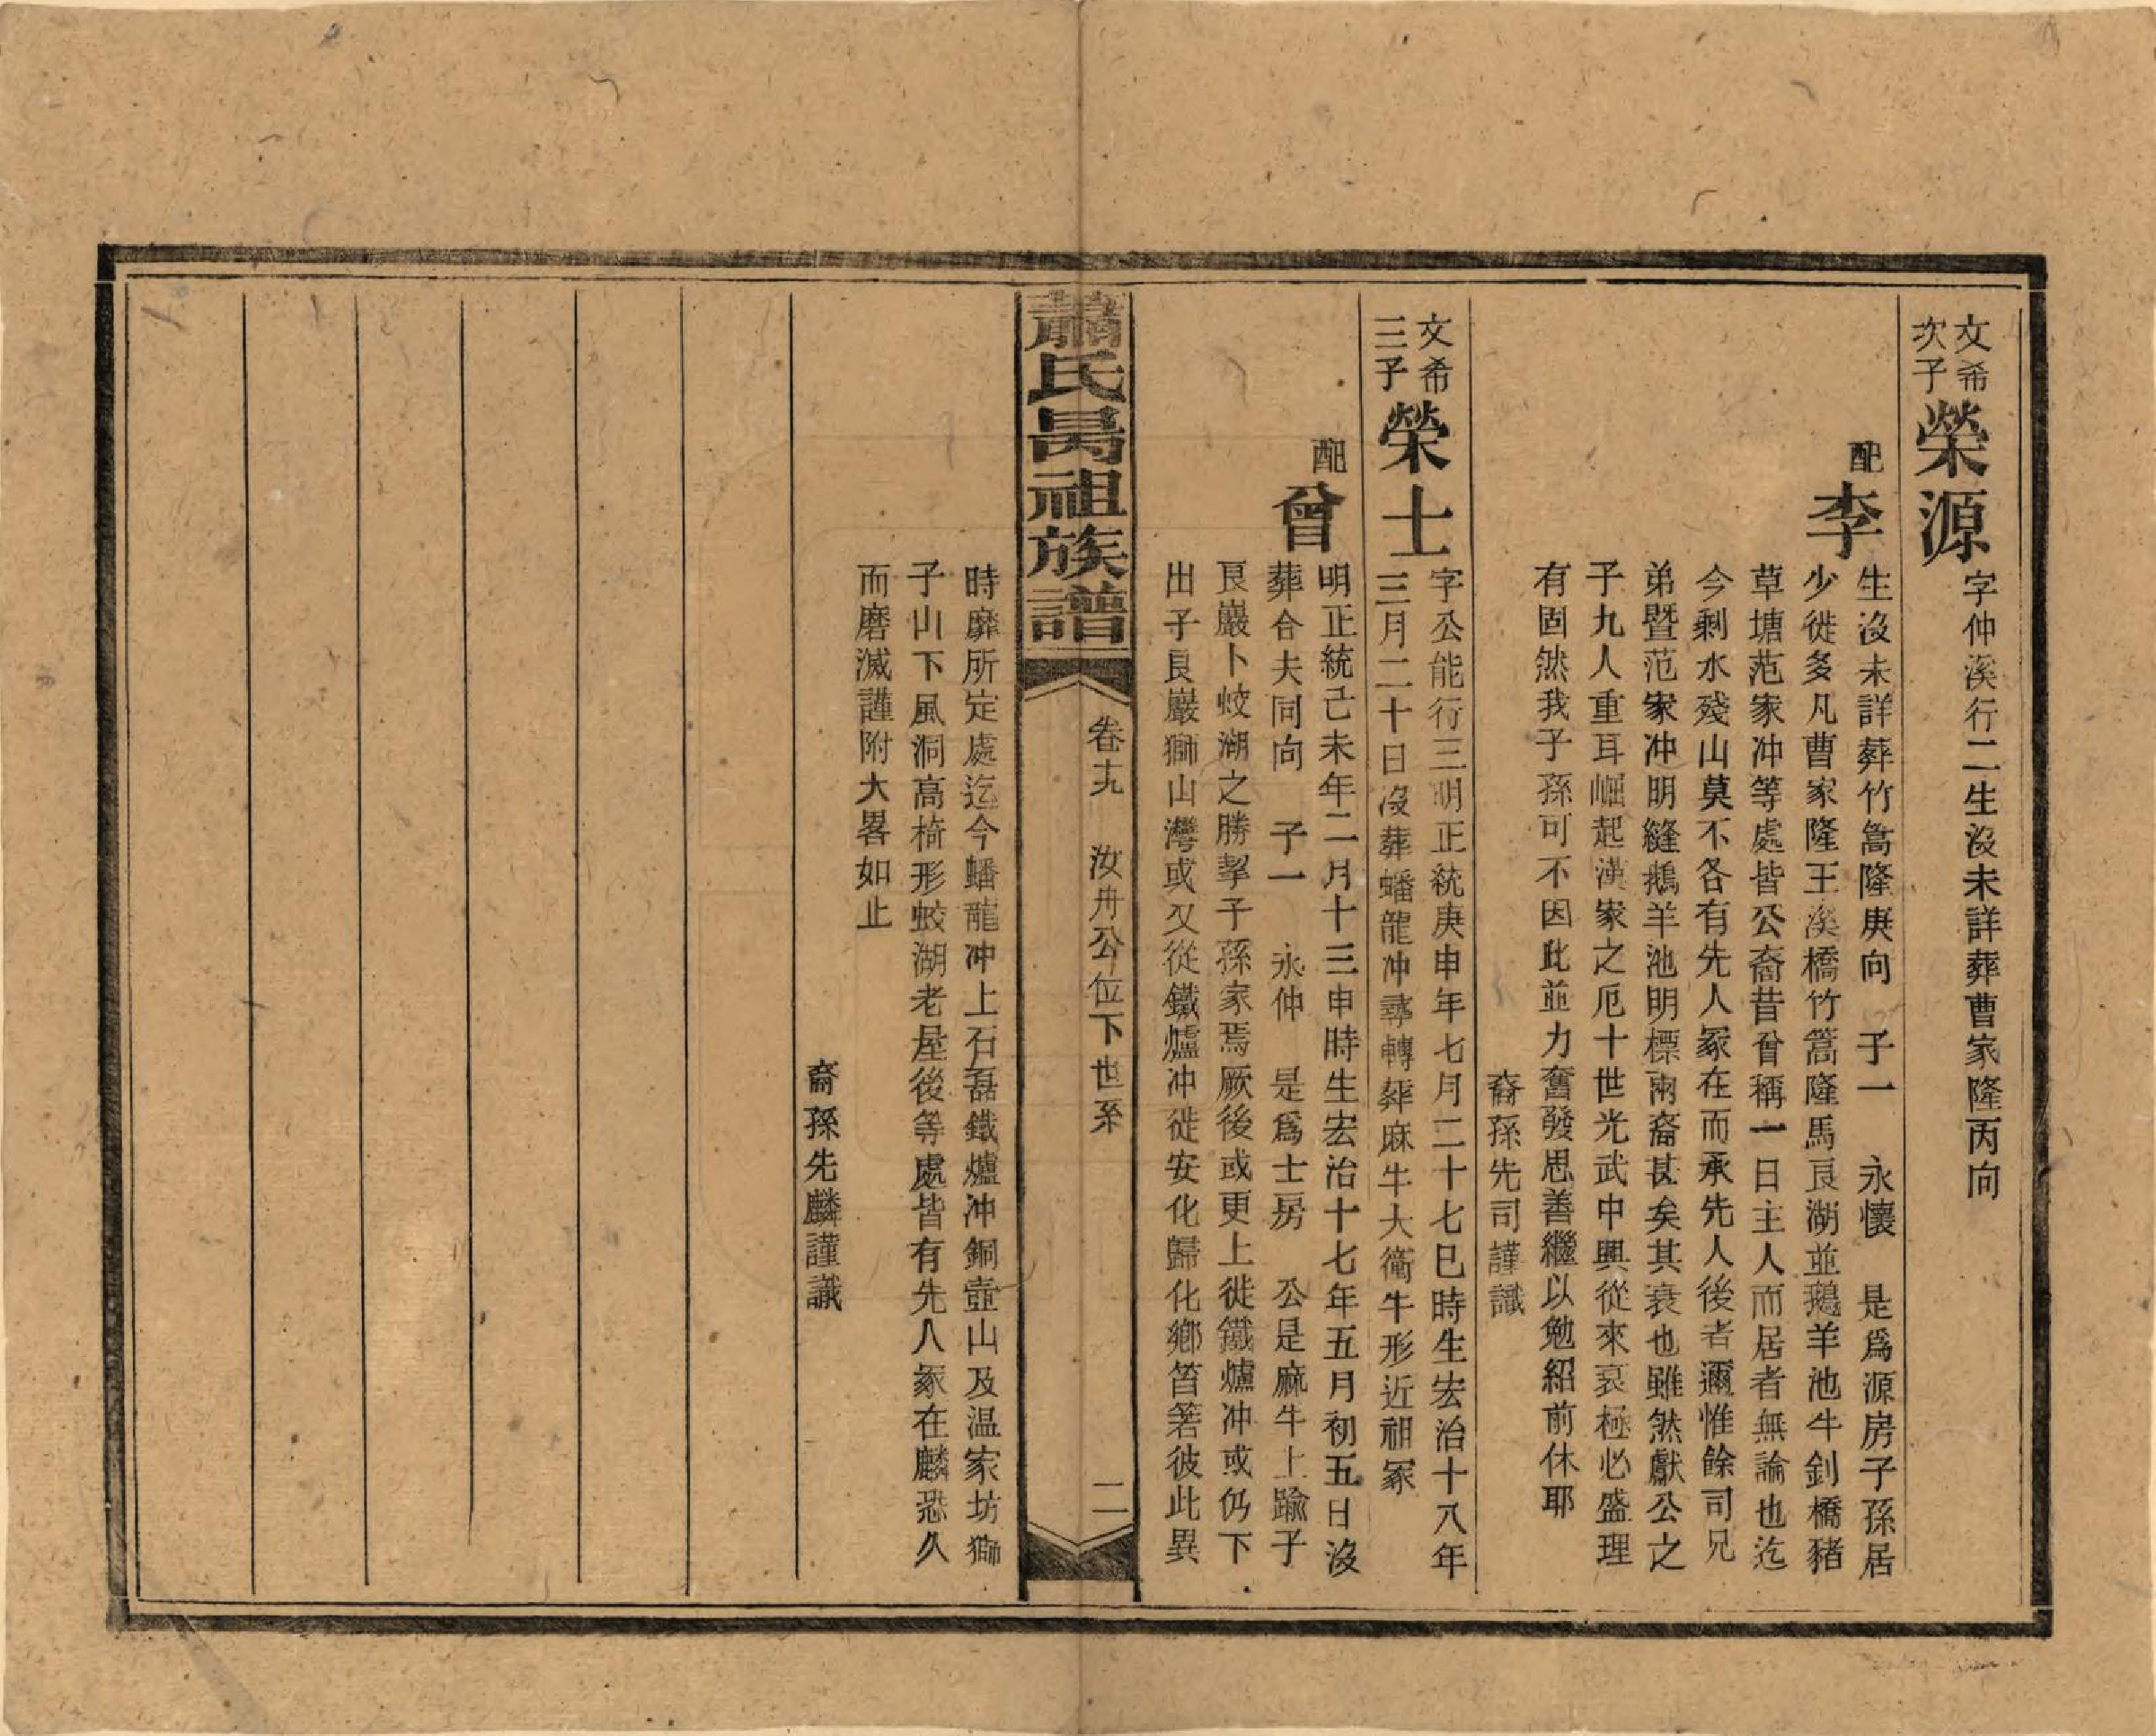 文希
次子
榮源
字仲溪行二生没未詳葬曹家隆丙向
配
李
生没未詳葬竹篙隆庚向 子一 永懷 是爲源房子孫居
少徙多凡曹家隆王溪橋竹篙隆馬良湖並鵝羊池牛釗橋豬
草塘范家冲等處皆公裔昔曾稱一日主人而居者無論也迄
今剩水殘山莫不各有先人冢在而承先人後者邇惟餘司兄
弟暨范家冲明縫鵝羊池明標兩裔甚矣其衰也雖然獻公之
子九人重耳崛起漢家之厄十世光武中興從來衰極必盛理
有固然我子孫可不因此並力奮發思善繼以勉紹前休耶
裔孫先司謹識
文希
三子
榮士
字公能行三明正統庚申年七月二十七巳時生宏治十八年
三月二十日没葬蟠龍冲尋轉葬麻牛大衝牛形近祖冢
配
曾
明正統己未年二月十三申時生宏治十七年五月初五日没
葬合夫同向 子一 永仲 是爲士房 公是麻牛上踰子
艮巖卜蛟湖之勝挈子孫家焉厥後或更上徙鐵爐冲或仍下
出子艮巖獅山灣或又從鐵爐冲徙安化歸化鄉筲箬彼此異
蕭氏昺祖族譜
卷十九 汝舟公位下世系 二
時靡所定處迄今蟠龍冲上石磊鐵爐冲銅壺山及温家坊獅
子山下風洞高椅形蛟湖老屋後等處皆有先人冢在麟恐久
而磨滅謹附大畧如止
裔孫先麟謹識